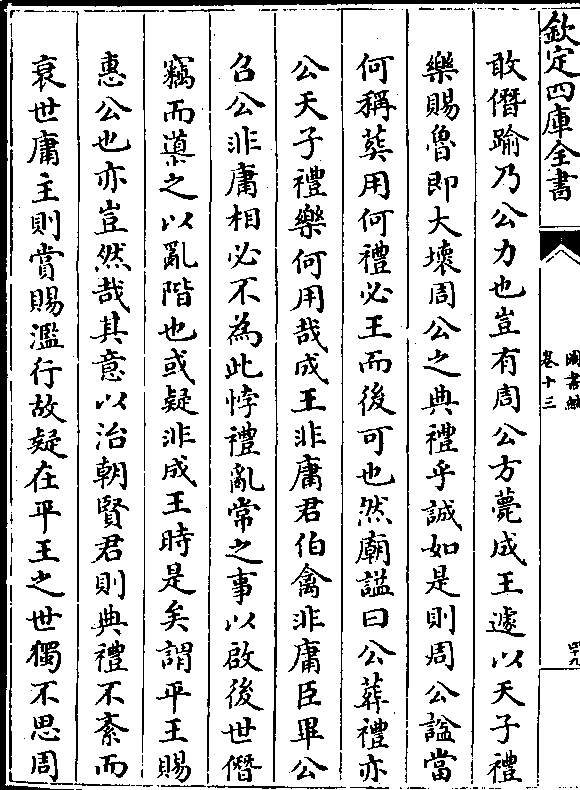 欽定四庫全書
圖書編
卷十三
四九
敢僭踰乃公力也豈有周公方薨成王遽以天子禮
樂賜魯即大壞周公之典禮乎誠如是則周公諡當
何稱葬用何禮必王而後可也然廟諡曰公葬禮亦
公天子禮樂何用哉成王非庸君伯禽非庸臣畢公
召公非庸相必不為此悖禮亂常之事以啟後世僭
竊而導之以亂階也或疑非成王時是矣謂平王賜
惠公也亦豈然哉其意以治朝賢君則典禮不紊而
衰世庸主則賞賜濫行故疑在平王之世獨不思周